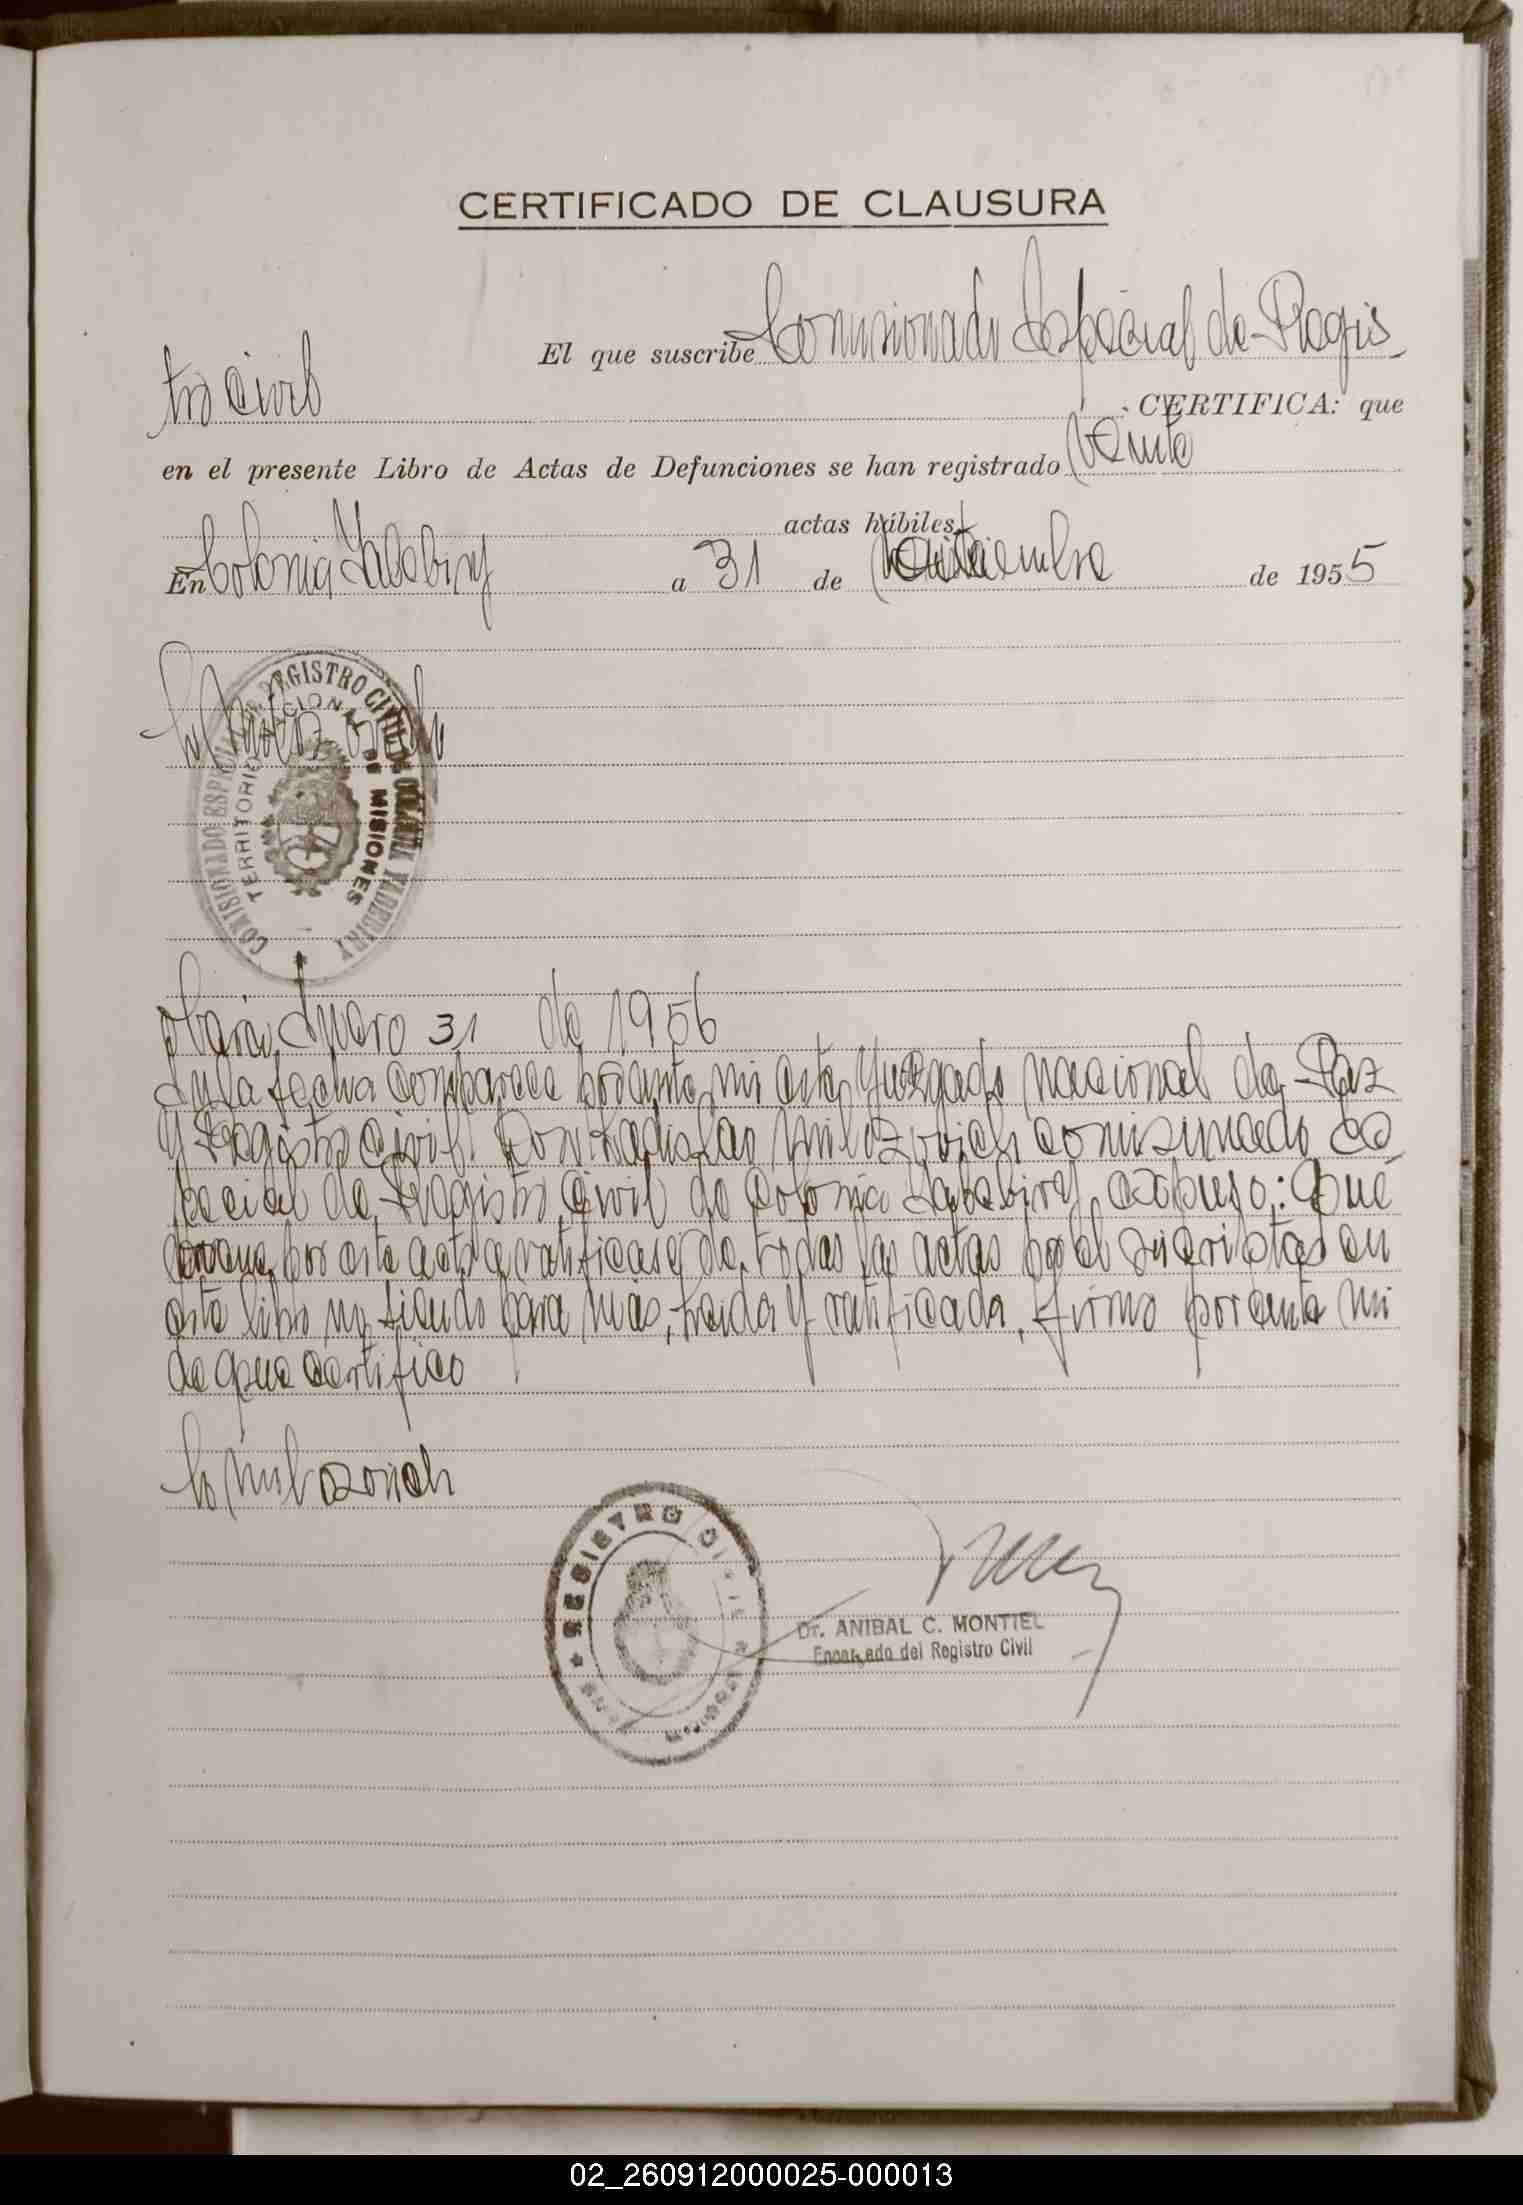 CERTIFICADO DE CLAUSURA
El que suscribe Comisionado Especial de Regis
tro Civil CERTIFICA: que
en el presente Libro de Actas de Defunciones se han registrado Veinte
actas hábiles.
En Colonia Yabebiry a 31 de de 1955
COMISIONADO ESPECIAL DE REGISTRO CIVIL DE COLONIA YABEBIRY
TERRITORIO NACIONAL DE MISIONES
Obera, Enero 31 de 1956
En la fecha comparece por ante mi este Yuzgado nacional de Paz
y Registro Civil Don Ladislao comisionado Es
pecial de Registro Civil de Colonia Yabebiry, expuso: Que
por este acto ratificase de todas las actas por el suscriptas en
este libro no siendo para mas, leida y ratificada, firmo por ante mi
de que certifico
REGISTRO CIVIL
MISIONES
Dr. ANIBAL C. MONTIEL
Encargado del Registro Civil
02_260912000025-000013